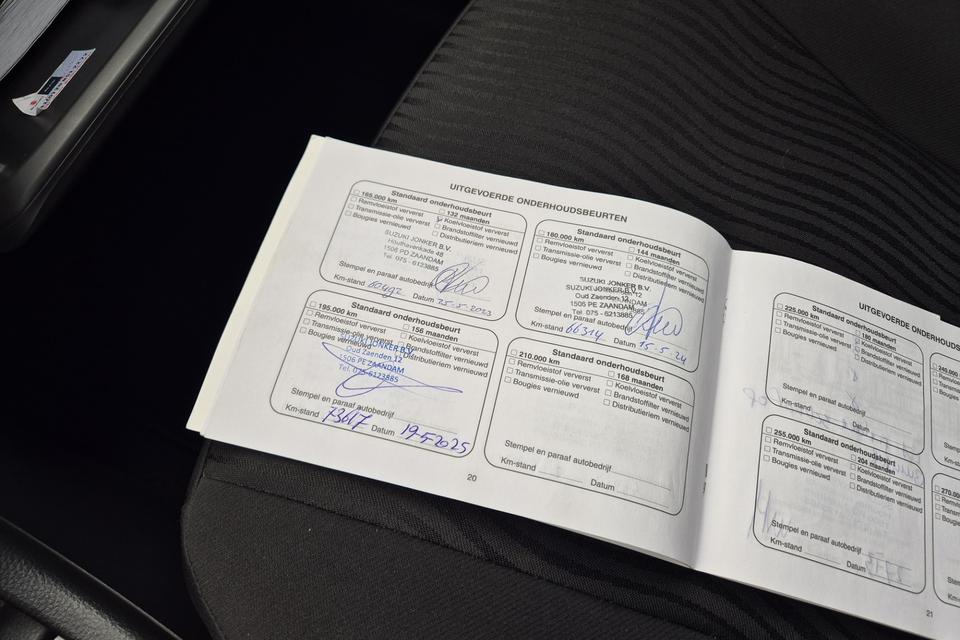 UITGEVOERDE ONDERHOUDSBEURTEN
Standaard onderhoudsbeurt
165.000 km
132 maanden
Remvloeistof ververst
Koelvloeistof ververst
Transmissie-olie ververst
Brandstoffilter vernieuwd
Bougies vernieuwd
Distributieriem vernieuwd
SUZUKI JONKER B.V.
Houthavenkade 48
1506 PD ZAANDAM
Tel. 075 - 6123885
Stempel en paraaf autobedrijf
Km-stand
Datum 25-5-2023
Standaard onderhoudsbeurt
180.000 km
144 maanden
Remvloeistof ververst
Koelvloeistof ververst
Transmissie-olie ververst
Brandstoffilter vernieuwd
Bougies vernieuwd
Distributieriem vernieuwd
SUZUKI JONKER B.V.
SUZUKI JONKER B.V.
Oud Zaenden 12
1506 PE ZAANDAM
Tel. 075 - 6123885
Stempel en paraaf autobedrijf
Km-stand 66314 Datum 15-5-24
Standaard onderhoudsbeurt
195.000 km
156 maanden
Remvloeistof ververst
Koelvloeistof ververst
Transmissie-olie ververst
Brandstoffilter vernieuwd
Bougies vernieuwd
Distributieriem vernieuwd
SUZUKI JONKER B.V.
Oud Zaenden 12
1506 PE ZAANDAM
Tel. 075-6123885
Stempel en paraaf autobedrijf
Km-stand 73617 Datum 19-5-2025
Standaard onderhoudsbeurt
210.000 km
168 maanden
Remvloeistof ververst
Koelvloeistof ververst
Transmissie-olie ververst
Brandstoffilter vernieuwd
Bougies vernieuwd
Distributieriem vernieuwd
Stempel en paraaf autobedrijf
Km-stand
Datum
20
UITGEVOERDE
Standaard onderhoudsbeurt
225.000 km
180 maanden
Remvloeistof ververst
Koelvloeistof ververst
Transmissie-olie ververst
Brandstoffilter vernieuwd
Bougies vernieuwd
Distributieriem vernieuwd
Stempel en paraaf autobedrijf
Km-stand
Datum
240.000
Standaard onderhoudsbeurt
255.000 km
204 maanden
Remvloeistof ververst
Koelvloeistof ververst
Transmissie-olie ververst
Brandstoffilter vernieuwd
Bougies vernieuwd
Distributieriem vernieuwd
Stempel en paraaf autobedrijf
Km-stand
Datum
270.000
21